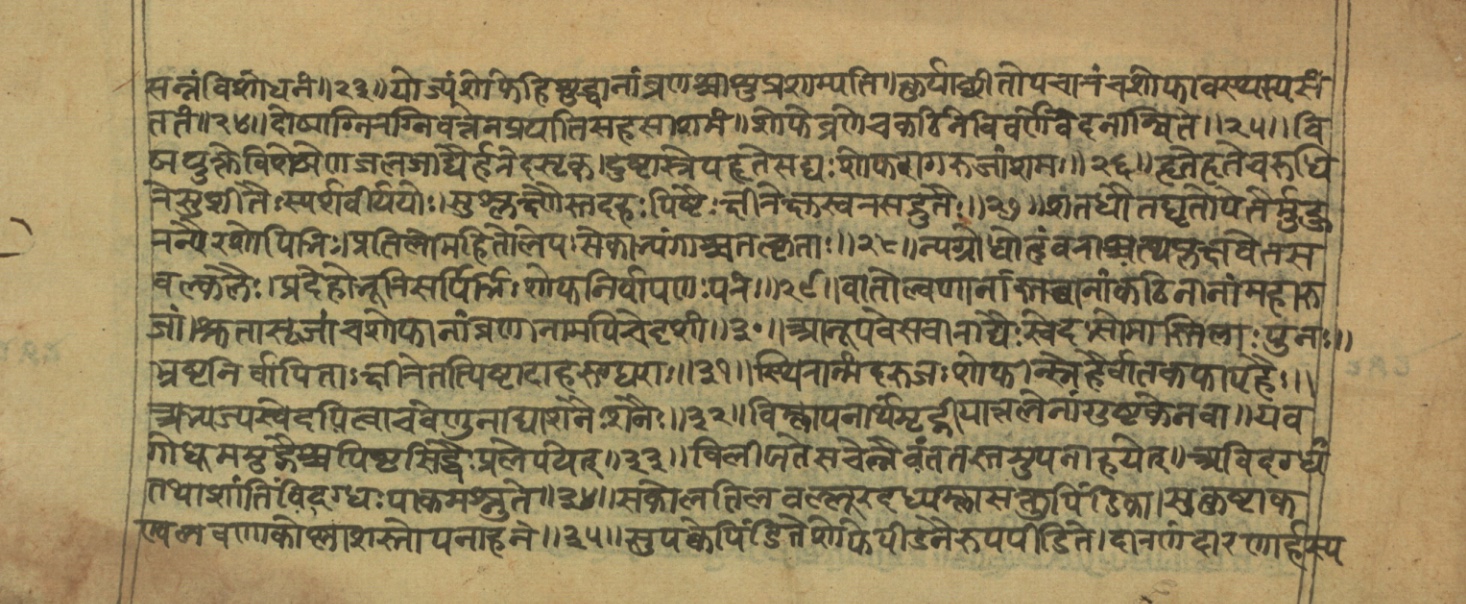 सन्नंविशोधनं॥२३॥योज्यंशोफेहिशुद्धानांव्रणश्चाशुप्रशाम्यति॥कुर्याच्छीतोपचारंचशोफावस्थस्यसं
ततं॥२४॥दोषाग्निरग्निवत्तेनप्रयातिसहसाशमं॥शोफेव्रणेचकठिनेविवर्णेवेदनान्विते॥२५॥वि
षयुक्तेविशेषेणजलजाद्यैर्हरेदसृक्।दुष्टास्रेपहृतेसद्यःशोफरागरुजांशमः॥२६॥हृतेहृतेचरुधि
रेसुशीतैःस्पर्शवीर्ययोः।सुश्लक्ष्णैस्तदहःपिष्टैःक्षीरेक्षुस्वरसद्रुतैः॥२७॥शतधौतघृतोपेतैर्मुहु
रन्यैरशोषिभिः।प्रतिलोमंहितोलेपःसेकाभ्यंगाश्चतत्कृताः॥२८॥न्यग्रोधोदुंबराश्वत्थप्लक्षवेतस
वल्कलैः।प्रदेहोभूरिसर्पिर्भिःशोफनिर्वापणःपरं॥२९॥वातोल्वणानांस्तब्धानांकठिनानांमहारु
जां।स्रुतासृजांचशोफानांव्रणानामपिचेदृशां॥३०॥आनूपवेसवाराद्यैःस्वेदःसोमास्तिलाःपुनः॥
भृष्टानिर्वापिताःक्षीरेतत्पिष्टादाहरुग्घराः॥३१॥स्थिरान्मंदरुजःशोफान्स्नेहैर्वातकफापहैः॥
अभ्यज्यस्वेदयित्वाचवेणुनाड्याशनैःशनैः॥३२॥विम्लापनार्थंमृद्नीयात्तलेनांगुष्टकेनवा॥यव
गोधूममुद्गैश्चपिष्टसिद्धैःप्रलेपयेत्॥३३॥विलीयतेसचेन्नैवंततस्तमुपनाहयेत्॥अविदग्धं
तथाशांतिंविदग्धःपाकमश्नुते॥३४॥सकोलतिलवल्लूरदध्यम्लासक्तुपिंडिका।सुकिण्वाक
ष्णलवणाकोष्णाशस्तोपनाहने॥३५॥सुपक्वेपिंडितेशोफेपीडनैरुपपीडिते।दारणंदारणार्हस्य